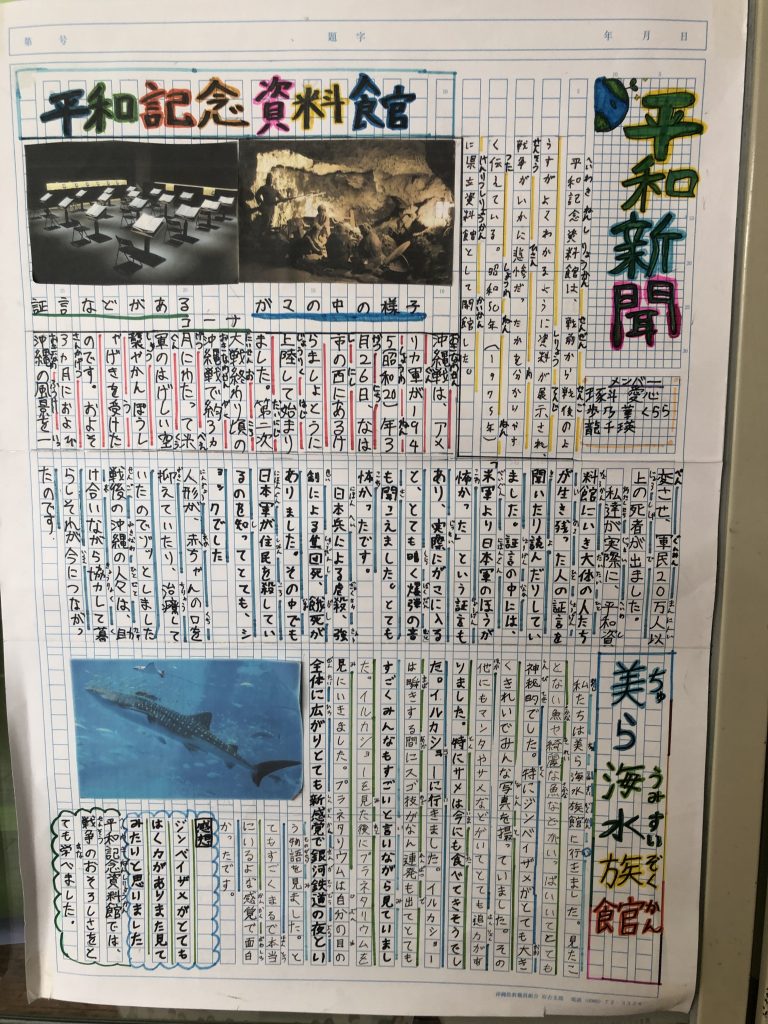 第 号 題字 年 月 日
平和新聞
メンバー
平和記念資料館
平和記念資料館は、戦前から戦後のよ
うすがよくわかるように資料が展示され、
戦争がいかに悲惨だったかを分かりやす
く伝えている。昭和50年(1975年)
に県立資料館として開館した。
証言などがある
コーナー
ガマの中の様子
沖縄戦は、アメ
リカ軍が194
5(昭和20)年3
月26日、なは
市の西にあるけ
らましょとうに
上陸して始まり
ました。第二次
大戦終わり頃の
沖縄戦で約3ヵ
月にわたって米
軍のはげしい空
襲やかんぽうし
ゃげきを受けた
のです。およそ
3ヵ月におよび
沖縄の風景を一
変させ、軍民20万人以
上の死者が出ました。
私達が実際に、平和資
料館にいき大体の人たち
が生き残った人の証言を
聞いたり読んだりしてい
ました。証言の中には、
「米軍より日本軍のほうが
怖かった」という証言も
あり、実際にがこに入る
と、とても叫く爆弾の音
も聞こえました。とても
怖かったです。
日本兵による虐殺、強
制による集団死、餓死が
ありました。その中でも
日本軍が住民を殺してい
るのを知ってとても、シ
ョックでした
人形が、赤ちゃんの口を
抑えていたり、治療して
いたのでゾッとしました
戦後の沖縄の人々は、助
け合いながら協力して暮
らしそれが今につながっ
たのです。
美ら海水族館
ちゅ うみすいぞくかん
私たちは美ら海水族館に行きました。見たこ
とない魚や綺麗な魚などがいっぱいいてとても
神秘的でした。特にジンベイザメがとても大き
くきれいでみんな写真を撮っていました。その
他にもマンタやサメなどがいてとても迫力があ
りました。特にサメは今にも食べてきそうでし
た。イルカショーに行きました。イルカショー
は瞬きする間にスゴ技がなん連発も出てとても
すごくみんなもすごいと言いながら見ていまし
た。イルカショーを見た後にプラネタリウムを
見にいきました。プラネタリウムは自分の目の
全体に広がりとても新感覚で銀河鉄道の夜とい
う物語を見ました。と
てもすごくまるで本当
にいるような感覚で面白
かったです。
感想
ジンベイザメがとても
はく力がありまた見て
みたいと思いました
平和記念資料館では、
戦争のおそろしさをと
ても学べました。